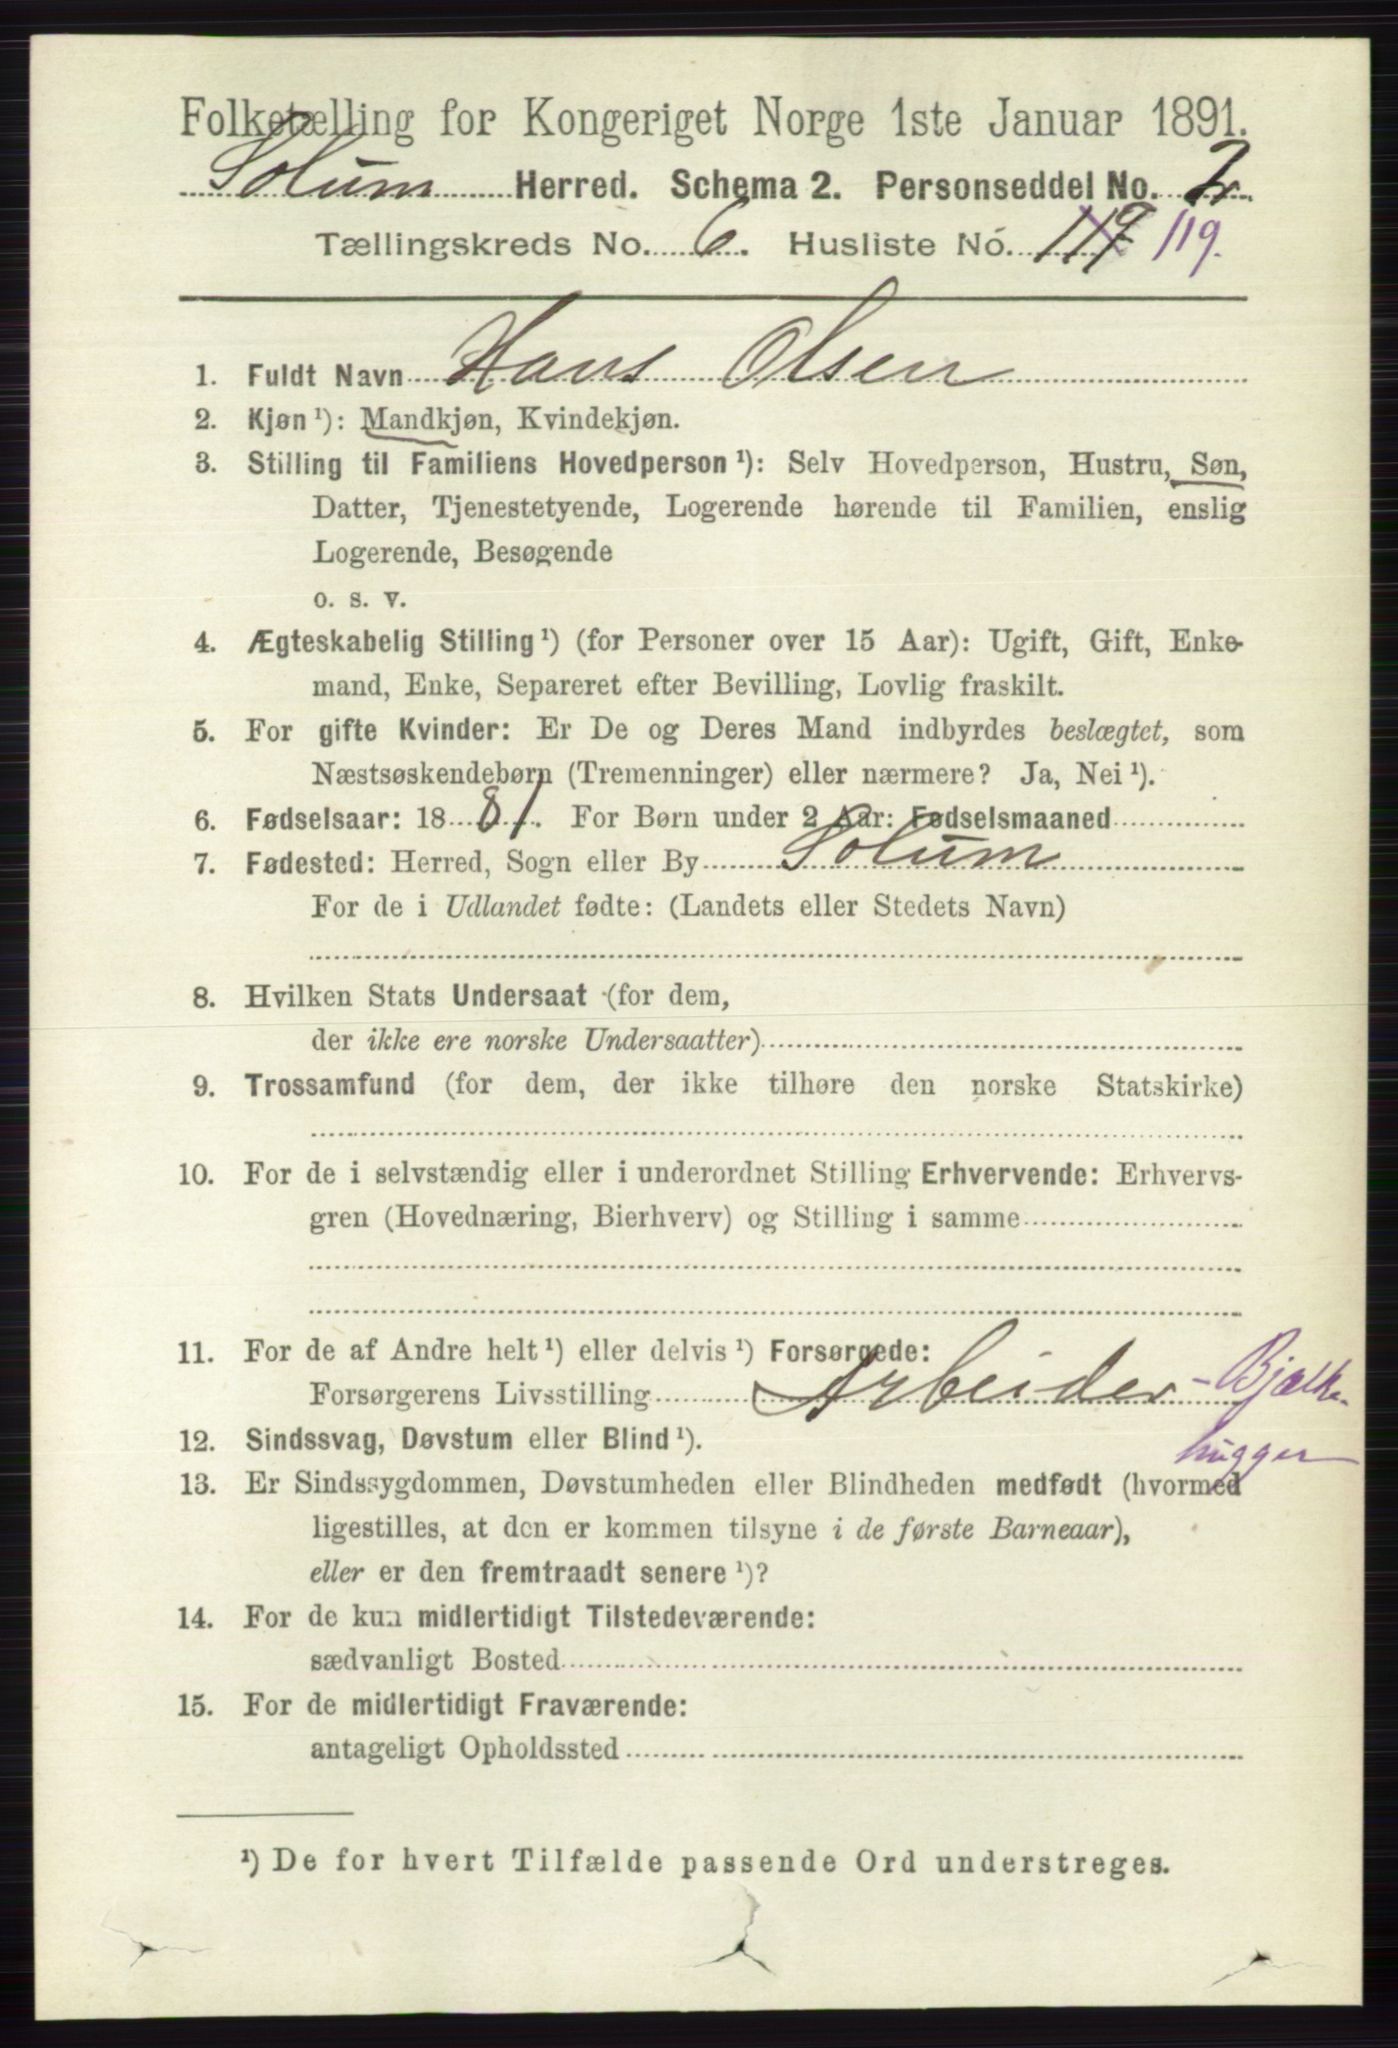 Folketælling for Kongeriget Norge 1ste Januar 1891.
Solum Herred. Schema 2. Personseddel No.
Tællingskreds No. 6. Husliste No. 119.
1. Fuldt Navn Hans Olsen
2. Kjøn¹): Mandkjøn, Kvindekjøn.
3. Stilling til Familiens Hovedperson¹): Selv Hovedperson, Hustru, Søn,
Datter, Tjenestetyende, Logerende hørende til Familien, enslig
Logerende, Besøgende
o. s. v.
4. Ægteskabelig Stilling¹) (for Personer over 15 Aar): Ugift, Gift, Enke-
mand, Enke, Separeret efter Bevilling, Lovlig fraskilt.
5. For gifte Kvinder: Er De og Deres Mand indbyrdes beslægtet, som
Næstsøskendebørn (Tremenninger) eller nærmere? Ja, Nei¹).
6. Fødselsaar: 1881. For Børn under 2 Aar: Fødselsmaaned
7. Fødested: Herred, Sogn eller By Solum
For de i Udlandet fødte: (Landets eller Stedets Navn)
8. Hvilken Stats Undersaat (for dem,
der ikke ere norske Undersaatter)
9. Trossamfund (for dem, der ikke tilhøre den norske Statskirke)
10. For de i selvstændig eller i underordnet Stilling Erhvervende: Erhvervs-
gren (Hovednæring, Bierhverv) og Stilling i samme
11. For de af Andre helt¹) eller delvis¹) Forsørgede:
Forsørgerens Livsstilling Arbeider - Bjælke-
hugger
12. Sindssvag, Døvstum eller Blind¹).
13. Er Sindssygdommen, Døvstumheden eller Blindheden medfødt (hvormed
ligestilles, at den er kommen tilsyne i de første Barneaar),
eller er den fremtraadt senere¹)?
14. For de kun midlertidigt Tilstedeværende:
sædvanligt Bosted
15. For de midlertidigt Fraværende:
antageligt Opholdssted
¹) De for hvert Tilfælde passende Ord understreges.